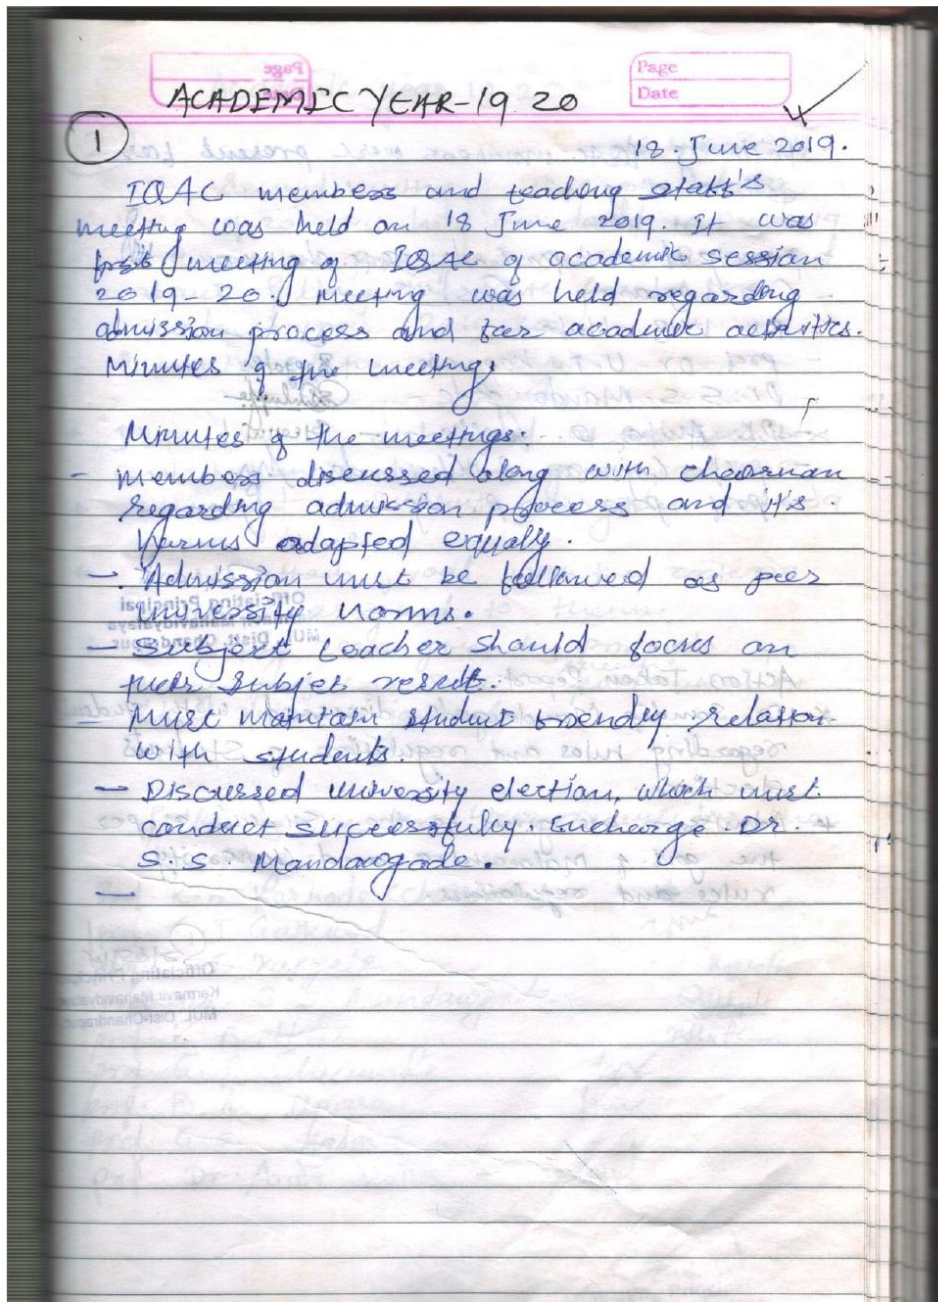 Page
Date
ACADEMIC YEAR-19 20
1
18 June 2019.
IQAC members and teaching staff's
meeting was held on 18 June 2019. It was
first meeting of IQAC of academic session
2019-20. Meeting was held regarding
admission process and for academic activities.
Minutes of the meeting.
Minutes of the meetings.
- members discussed along with chairman
regarding admission process and it's
norms adapted equally.
- Admission must be followed as per
university norms.
- Subject teacher should focus on
their subject result.
- Must maintain student friendly relation
with students.
- Discussed university election, which must
conduct successfully. Encharge Dr.
S.S Mandavgade.
-